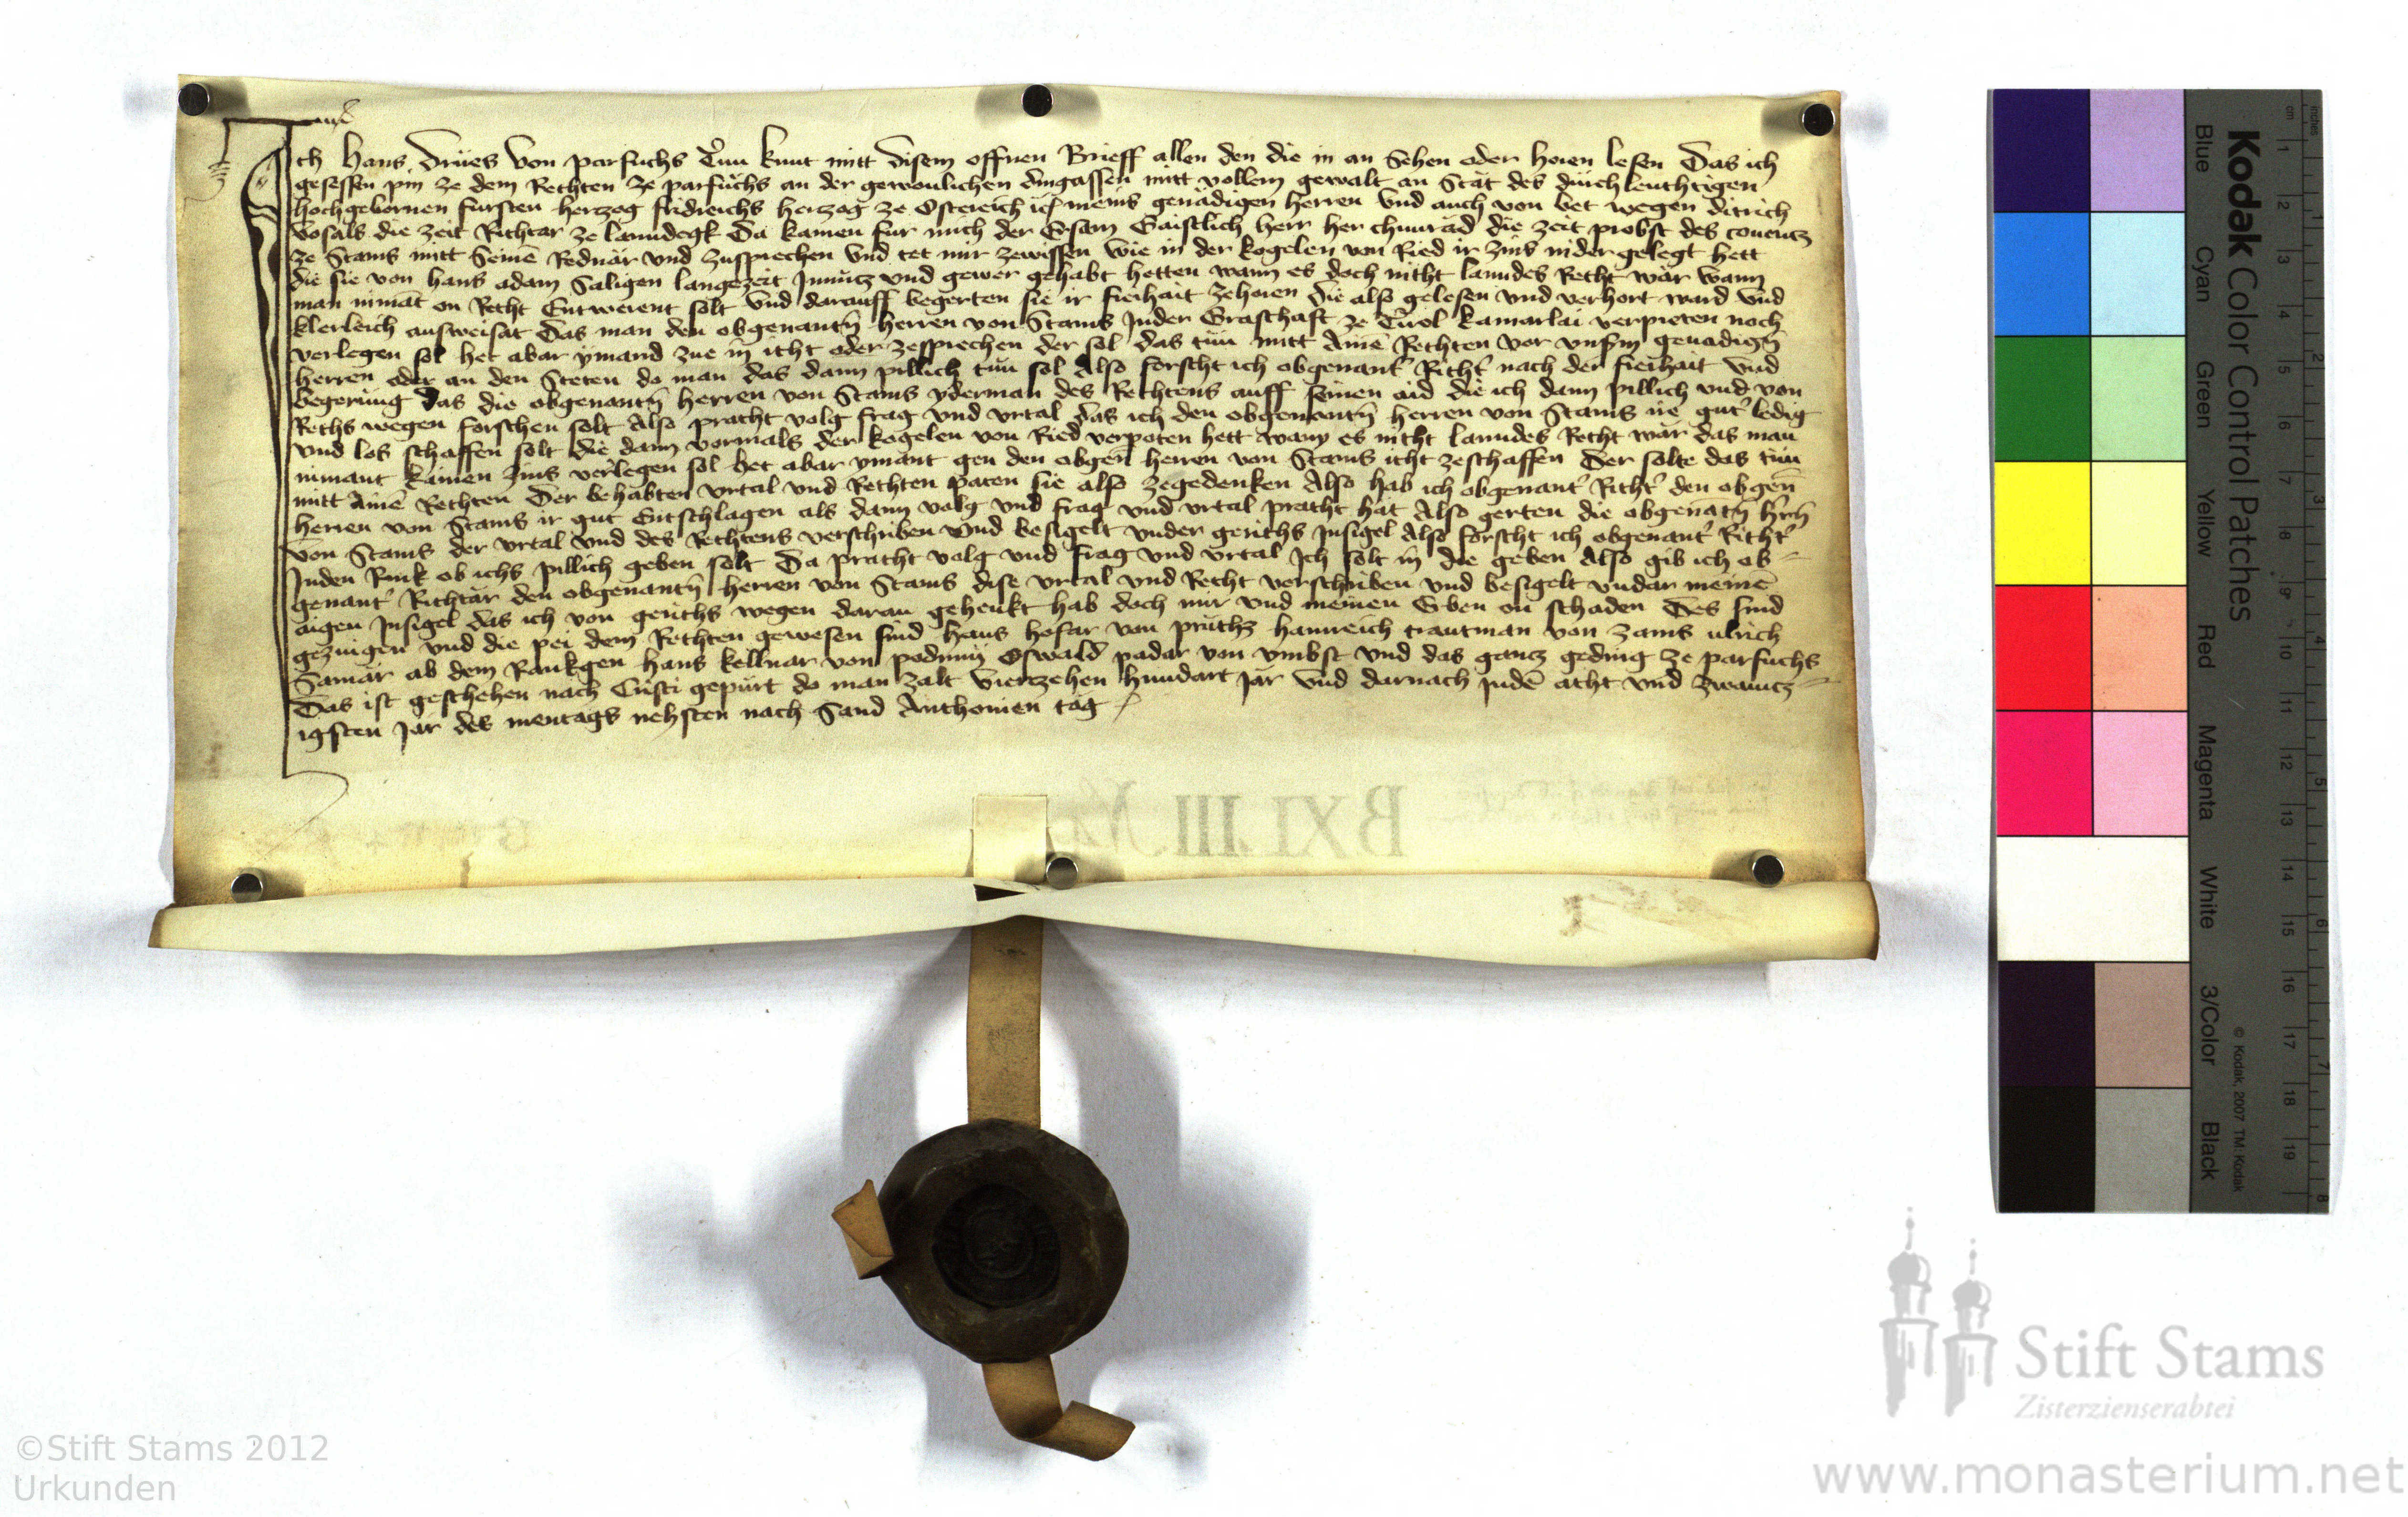 Ich Hans Drües von parfuchs Tun kunt mitt disem offnen Brieff allen den die in an sehen oder horen lesen Das ich
gesessen pin ze dem Rechten ze parfuchs an der gewonlichen dingassen mitt vollem gewalt an stat des durchleuchtigen
hochgebornen fursten hertzog fridreichs hertzog ze Ostereich meins genädigen herren vnd auch von bet wegen ditrich
vosals die zeit Richtar ze lanndegk Da kamen fur mich der Ersam Gaistlich herr her chunrad die zeit probst des conentz
ze Stams mitt Seinē Rednar vnd zusprechen vnd tet mir zewissen wie in der kogelen von Ried ir zins nider gelegt hett
die sie von hans adam Saligen langezeit Jnnutz vnd gewer gehabt hetten wann es doch nitht lanndes Recht wär wann
man nimāt on Recht Entwerent solt vnd darauff begerten sie ir freihait zehoren die also gelesen vnd verhort ward vnd
klerleich ausweisat das man den obgenantn̄ herren von Stams Jnder Graschaft ze Tirol kainarlai verpieten noch
verlegen sol het abar ymand zue in icht oder zesprechen der sol das tun mitt Ainē Rechten vor vnsm genadign̄
herren oder an den Steten do man das dann pillich tun sol Also forscht ich obgenant' Ritht' nach der freihait vnd
begerung das die obgenantn̄ herren von Stams yderman des Rechtens auff seinen aid die ich dann pillich vnd von
Reths wegen forschen solt Also pracht volg frag vnd vrtal das ich den obgenantn̄ herren von Stams ire gut' ledig
vnd los schaffen solt die dann vormals der kogelen von Ried verpoten hett wann es nitht lanndes Recht wär das man
nimant kainen zins verlegen sol het abar ymant gen den obgen̄ herren von Stams icht zeschaffen Der solte das tun
mitt Ainē Rechten Der behabten vrtal vnd Rechten paten sie also zegedenken Also hab ich obgenant' Ritht' den obgen̄
herren von Stams ir gut Entschlagen als dann volg vnd frag vnd vrtal pracht hat Also gerten die obgenātn̄ hern̄
von Stams der vrtal vnd des Rechtens verschriben vnd besigelt vnder gerichs Jnsigel Also forscht ich obgenant' Ritht'
Jnden Rink ob ichs pillich geben solt Da pracht volg vnd frag vnd vrtal Ich solt in die geben Also gib ich ob-
genant' Richtär den obgenantn̄ herren von Stams dise vrtal vnd Recht verschriben vnd besigelt vndar meinē
aigen Jnsigel das ich von gerichs wegen daran gehenkt hab doch mir vnd meinen Erben on schaden Des sind
gezeugen vnd die pei dem Rechten gewesen sind Hans hofar von pruthz hainreich trautman von zams ulrich
Samär ab dem Rankgen hans kellnar von Oswald padar von vmbst vnd das gantz geding ze parfuchs
Das ist geschehen nach Cristi gepurt do man zalt viertzehen hundart Jar vnd darnach Jndē atht vnd zwaintz-
igsten Jar des mentags nehsten nach Sand Anthonien tag
Kodak Color Control Patches
© Kodak, 2007 TM: Kodak
Blue Cyan Green Yellow Red Magenta White 3/Color Black
inches 1 2 3 4 5 6 7 8
cm 1 2 3 4 5 6 7 8 9 10 11 12 13 14 15 16 17 18 19
Stift Stams
Zisterzienserabtei
©Stift Stams 2012
Urkunden
www.monasterium.net